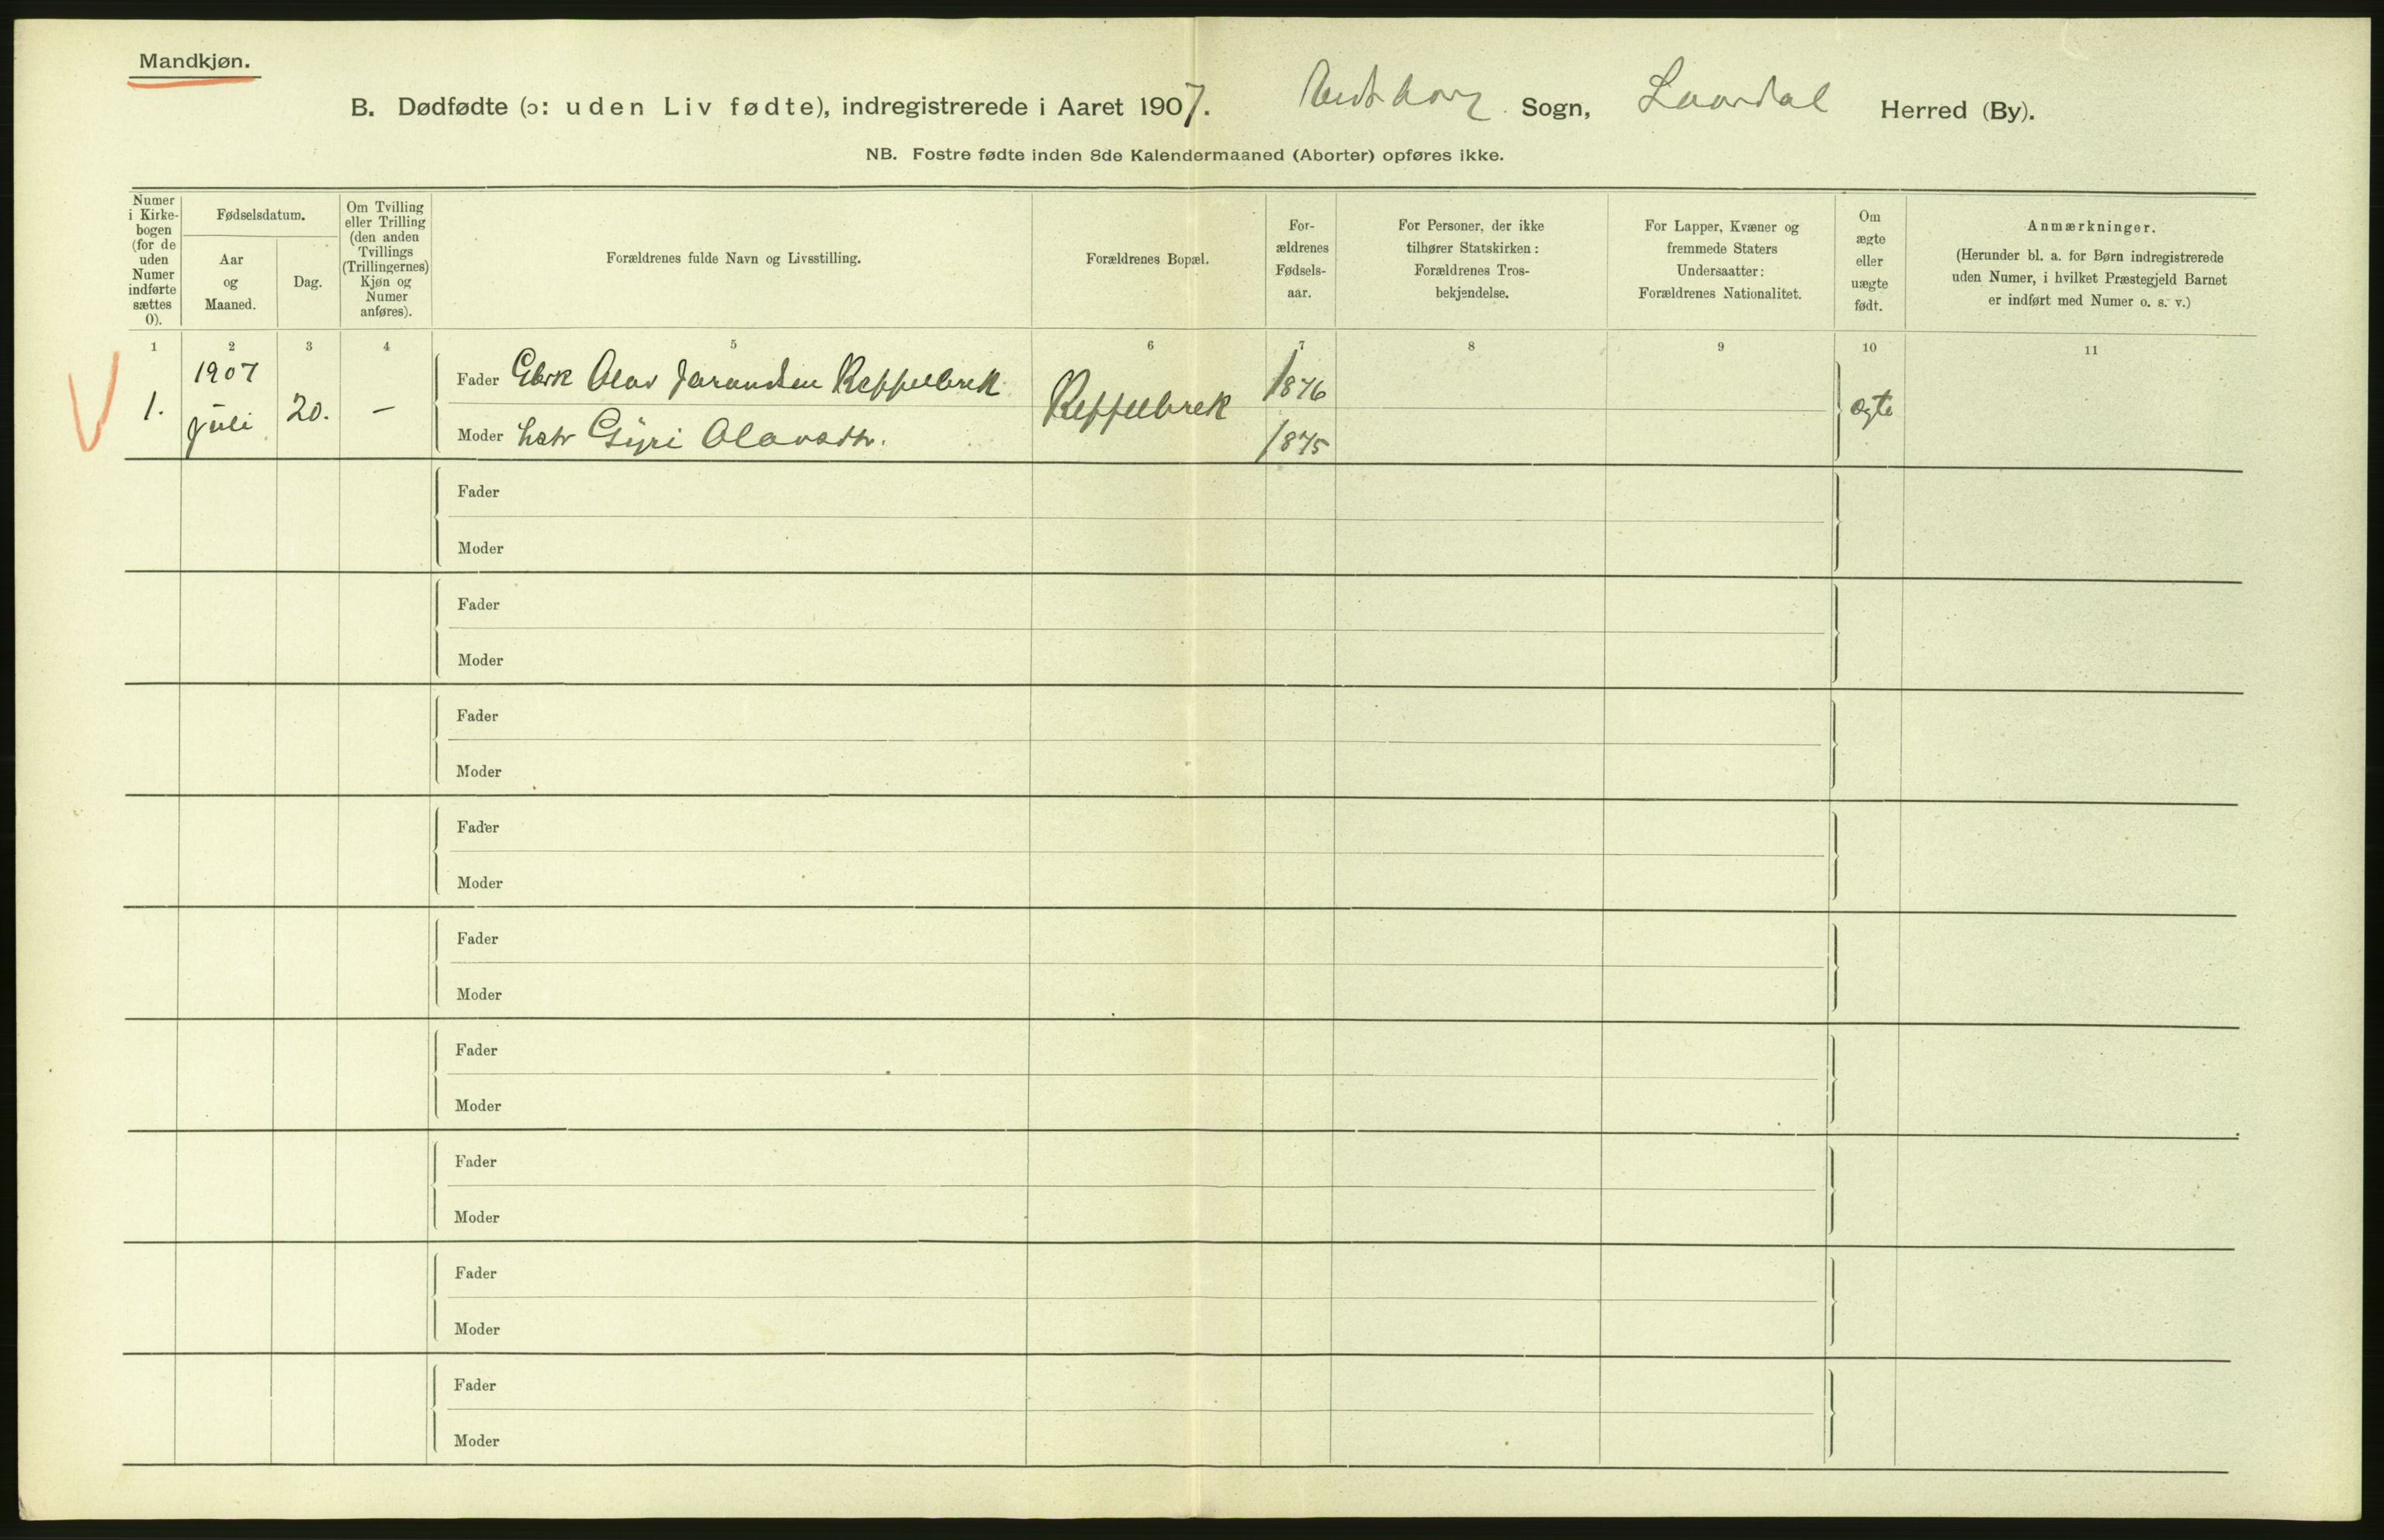 Mandkjøn.
B. Dødfødte (ɔ: uden Liv fødte), indregistrerede i Aaret 1907. Sogn, Laardal Herred (By).
NB. Fostre fødte inden 8de Kalendermaaned (Aborter) opføres ikke.
Numer i Kirke-bogen (for de uden Numer indførte sættes 0).
Fødselsdatum.
Aar og Maaned.
Dag.
Om Tvilling eller Trilling (den anden Tvillings (Trillingernes) Kjøn og Numer anføres).
Forældrenes fulde Navn og Livsstilling.
Forældrenes Bopæl.
For-ældrenes Fødsels-aar.
For Personer, der ikke tilhører Statskirken: Forældrenes Tros-bekjendelse.
For Lapper, Kvæner og fremmede Staters Undersaatter: Forældrenes Nationalitet.
Om ægte eller uægte født.
Anmærkninger.
(Herunder bl. a. for Børn indregistrerede uden Numer, i hvilket Præstegjeld Barnet er indført med Numer o. s. v.)
1 2 3 4 5 6 7 8 9 10 11
1. 1907 Juli 20. –
Fader Gbrk Olav Jarandsen Reppelbrek
Moder Gyri Olavsdtr.
Reppelbrek
1876
1875
ægte
Fader
Moder
Fader
Moder
Fader
Moder
Fader
Moder
Fader
Moder
Fader
Moder
Fader
Moder
Fader
Moder
Fader
Moder